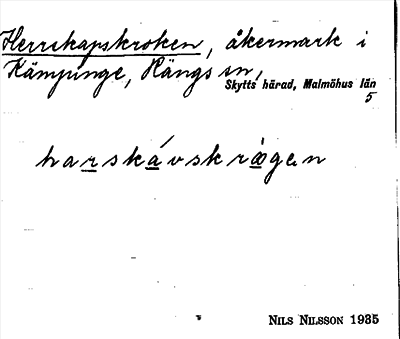 Herrskapskroken, åkermark i
Kämpinge, Rängs sn,
Skytts härad, Malmöhus län
5
harskávskrågen
NILS NILSSON 1935